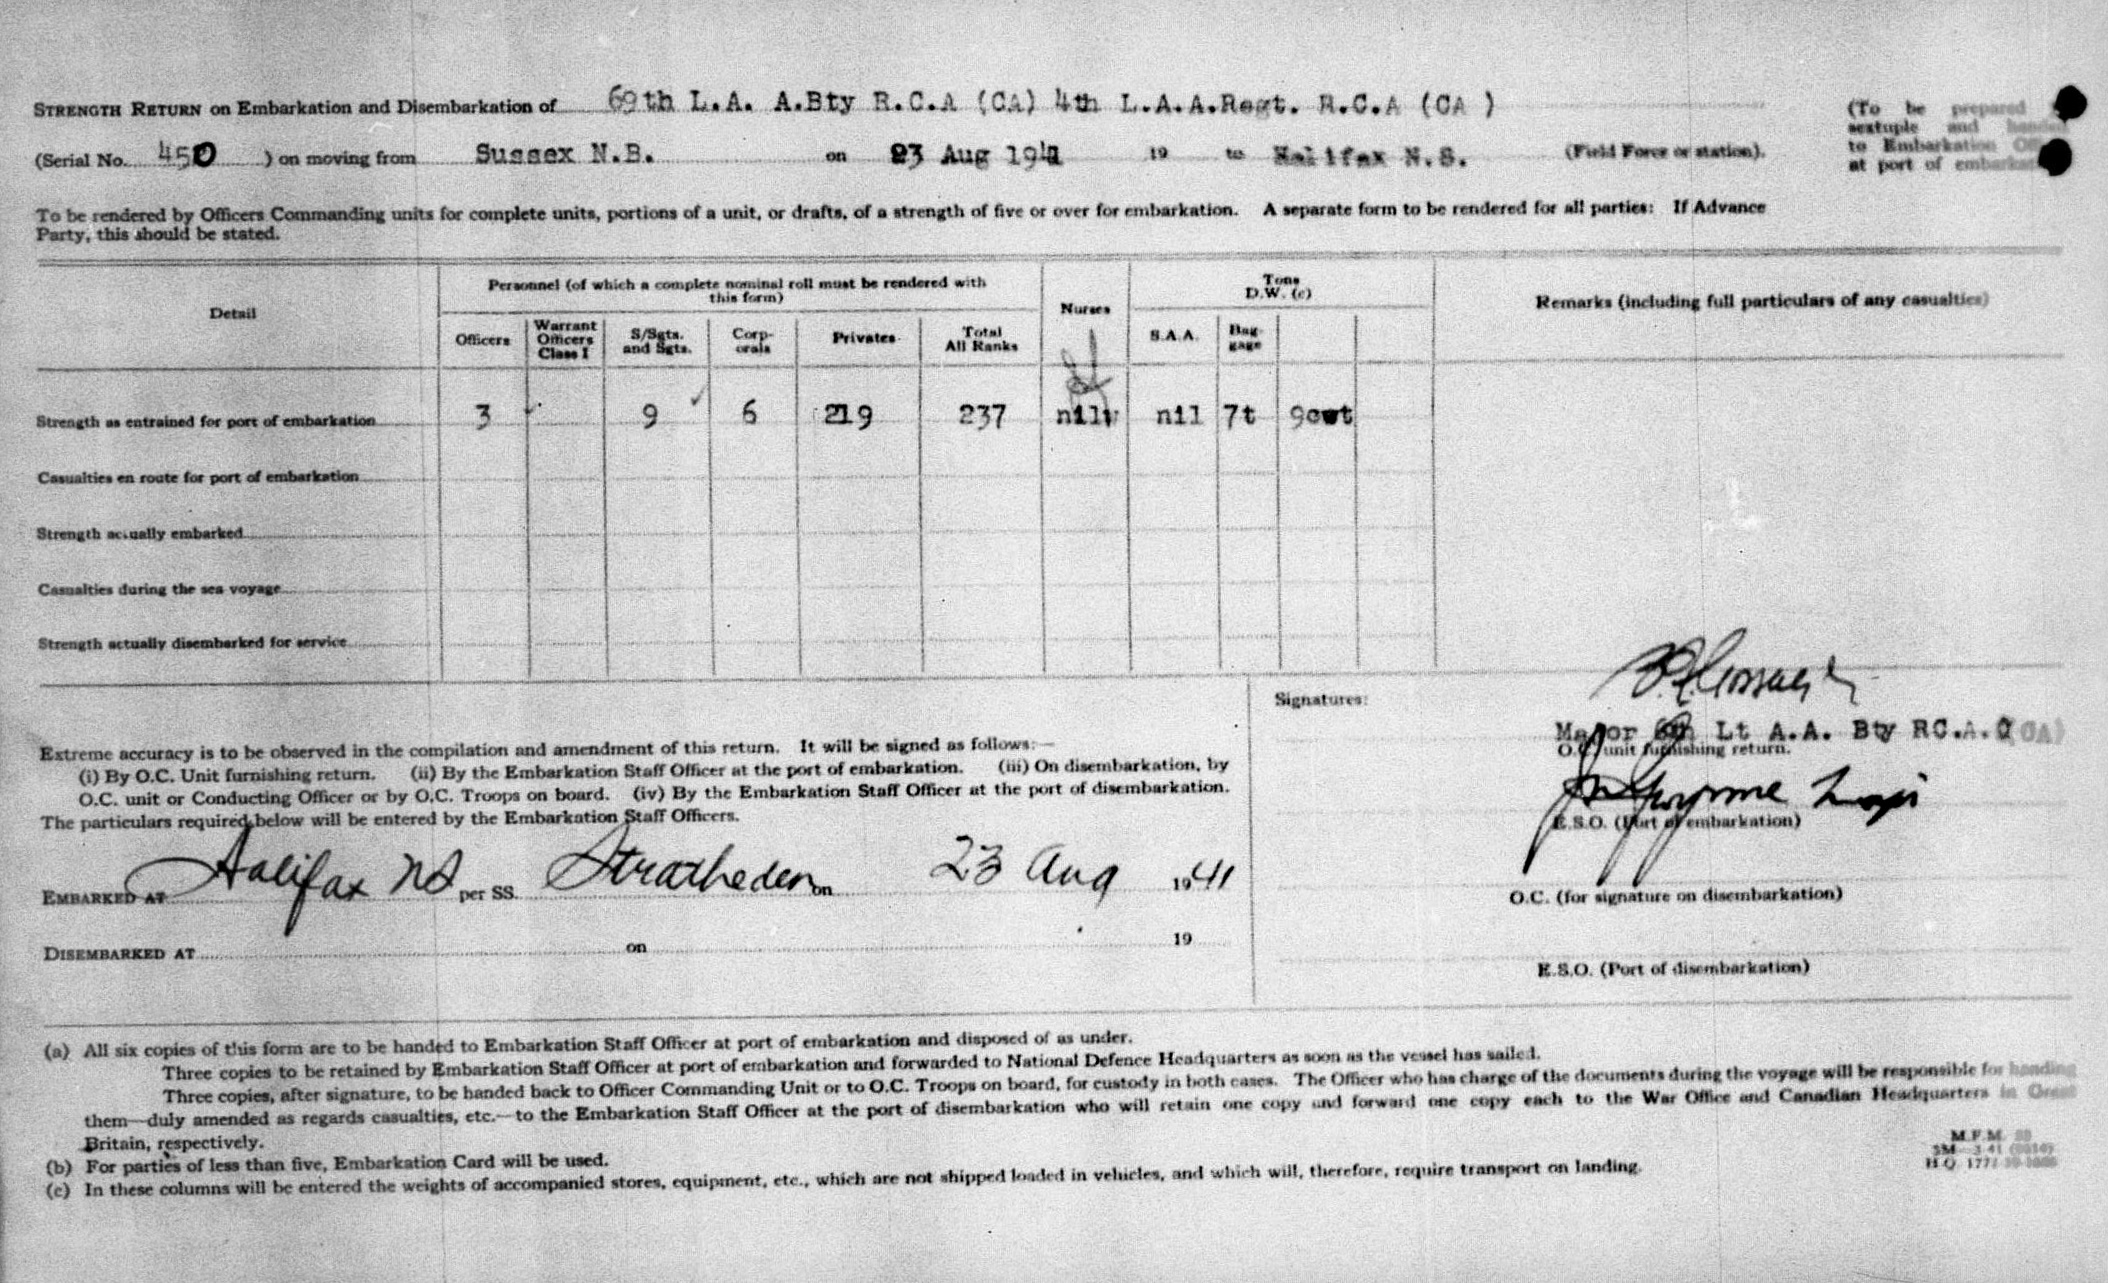 STRENGTH RETURN on Embarkation and Disembarkation of 69th L.A. A.Bty R.C.A (CA) 4th L.A.A.Regt. R.C.A (CA )
(To be prepared
sextuple and handed
to Embarkation
at port of
(Serial No. 450 ) on moving from Sussex N.B. on 23 Aug 1941 19 to Halifax N.S. (Field Force or station).
To be rendered by Officers Commanding units for complete units, portions of a unit, or drafts, of a strength of five or over for embarkation. A separate form to be rendered for all parties: If Advance
Party, this should be stated.
Detail
Personnel (of which a complete nominal roll must be rendered with
this form)
Nurses
Tons
D.W. (c)
Remarks (including full particulars of any casualties)
Officers
Warrant
Officers
Class I
S/Sgts.
and Sgts.
Corp-
orals
Privates
Total
All Ranks
S.A.A.
Bag-
gage
Strength as entrained for port of embarkation 3 9 6 219 237 nil nil 7t 9cwt
Casualties en route for port of embarkation
Strength actually embarked
Casualties during the sea voyage
Strength actually disembarked for service
Signatures:
Major Lt A.A. Bty RC.A. (CA)
O.C. unit furnishing return.
Extreme accuracy is to be observed in the compilation and amendment of this return. It will be signed as follows:—
(i) By O.C. Unit furnishing return. (ii) By the Embarkation Staff Officer at the port of embarkation. (iii) On disembarkation, by
O.C. unit or Conducting Officer or by O.C. Troops on board. (iv) By the Embarkation Staff Officer at the port of disembarkation.
The particulars required below will be entered by the Embarkation Staff Officers.
E.S.O. (Port of embarkation)
EMBARKED AT Halifax NS per SS. Stratheden on 23 Aug 1941
O.C. (for signature on disembarkation)
DISEMBARKED AT on 19
E.S.O. (Port of disembarkation)
(a) All six copies of this form are to be handed to Embarkation Staff Officer at port of embarkation and disposed of as under.
Three copies to be retained by Embarkation Staff Officer at port of embarkation and forwarded to National Defence Headquarters as soon as the vessel has sailed.
Three copies, after signature, to be handed back to Officer Commanding Unit or to O.C. Troops on board, for custody in both cases. The Officer who has charge of the documents during the voyage will be responsible for handing
them—duly amended as regards casualties, etc.—to the Embarkation Staff Officer at the port of disembarkation who will retain one copy and forward one copy each to the War Office and Canadian Headquarters in Great
Britain, respectively.
(b) For parties of less than five, Embarkation Card will be used.
(c) In these columns will be entered the weights of accompanied stores, equipment, etc., which are not shipped loaded in vehicles, and which will, therefore, require transport on landing.
M.F.M.
H.Q.